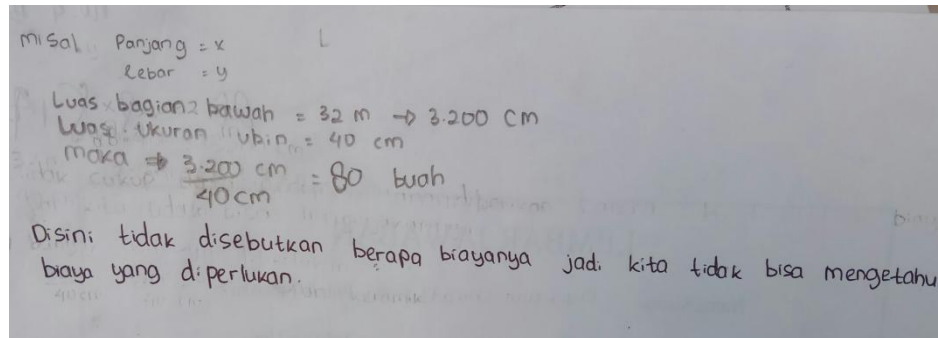 misal Panjang = x
Lebar = y
Luas bagian2 bawah = 32 m → 3.200 cm
Luas ukuran ubin = 40 cm
maka → 3.200 cm / 40 cm = 80 buah
Disini tidak disebutkan berapa biayanya jadi kita tidak bisa mengetahu
biaya yang diperlukan.